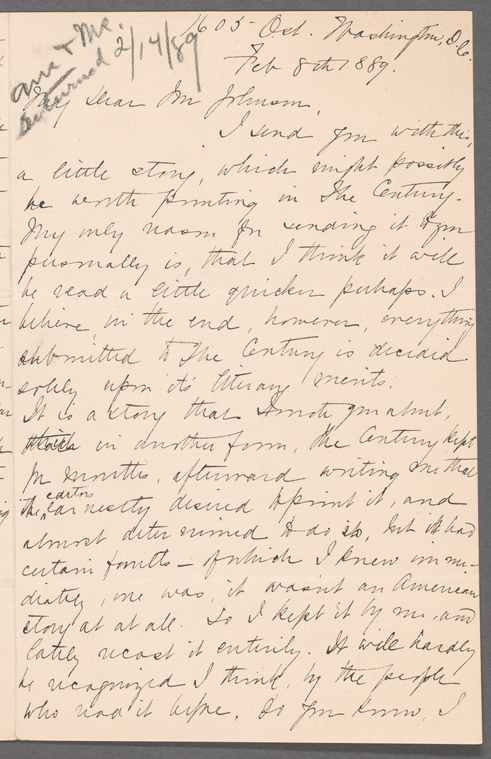 1605 Ost. Washington, D.C.
Feb 8th 1889.
ans + MS.
returned 2/14/89
My dear Mr Johnson,
I send you with this,
a little story, which might possibly
be worth printing in The Century.
My only reason for sending it to you
personally is, that I think it will
be read a little quicker perhaps. I
believe in the end, however, everything
submitted to The Century is decided
solely upon its literary merits.
It is a story that I wrote you about,
in another form, The Century kept
for months, afterward writing me that
the editor earnestly desired to print it, and
almost determined to do so, but it had
certain faults – of which I knew imme-
diately, one was, it wasn't an American
story at at all. So I kept it by me, and
lately recast it entirely. It will hardly
be recognized I think, by the people
who read it before. Do you know, I